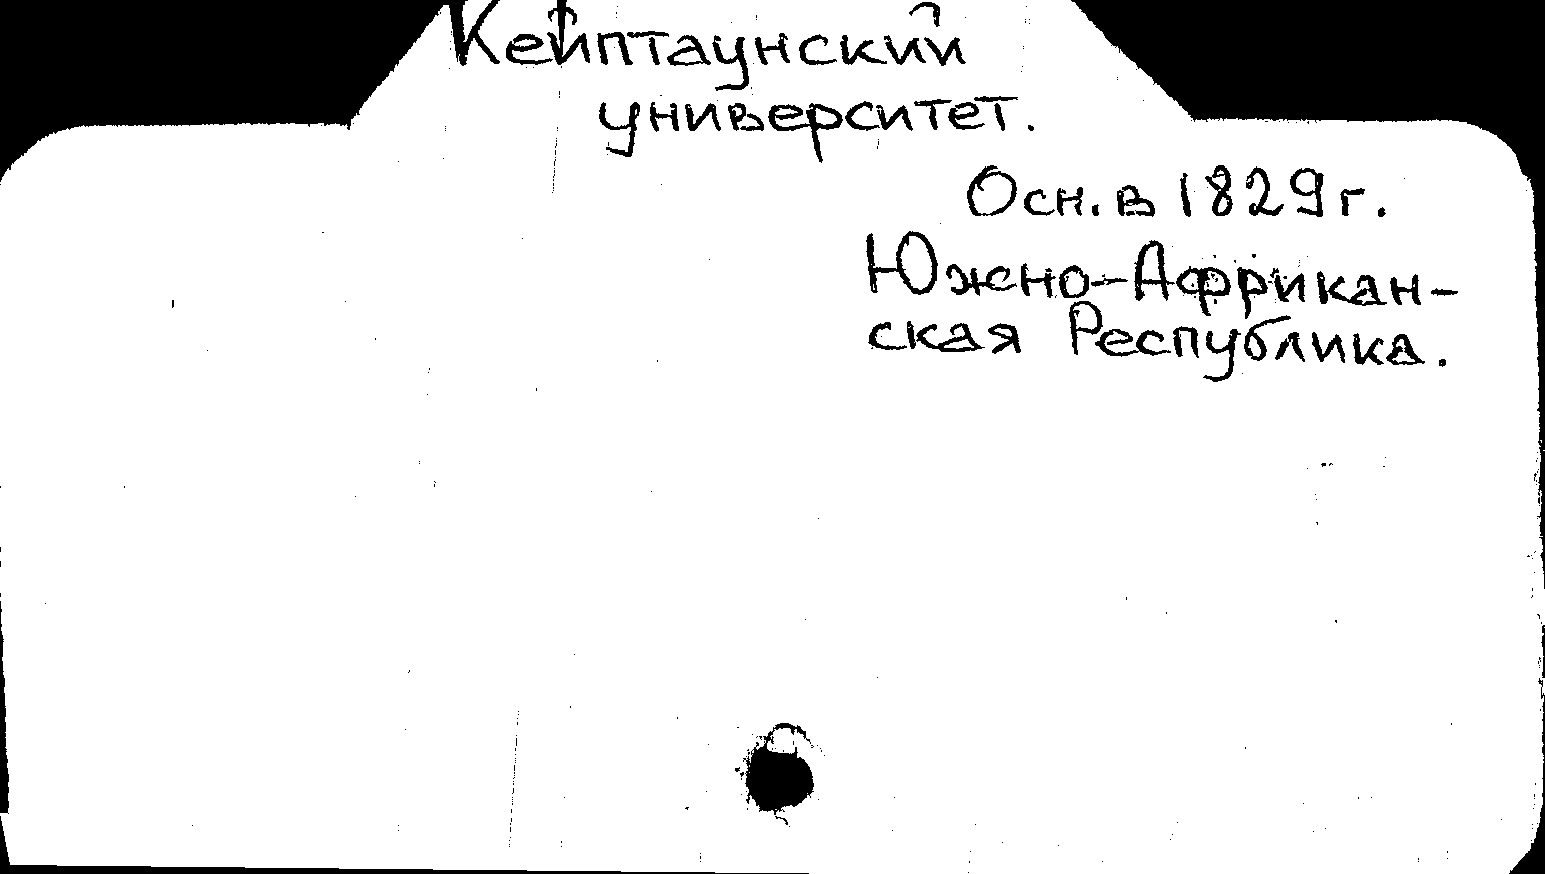 Кейптаунский
университет.
Осн. в 1829 г.
Южно-Африкан-
ская Республика.